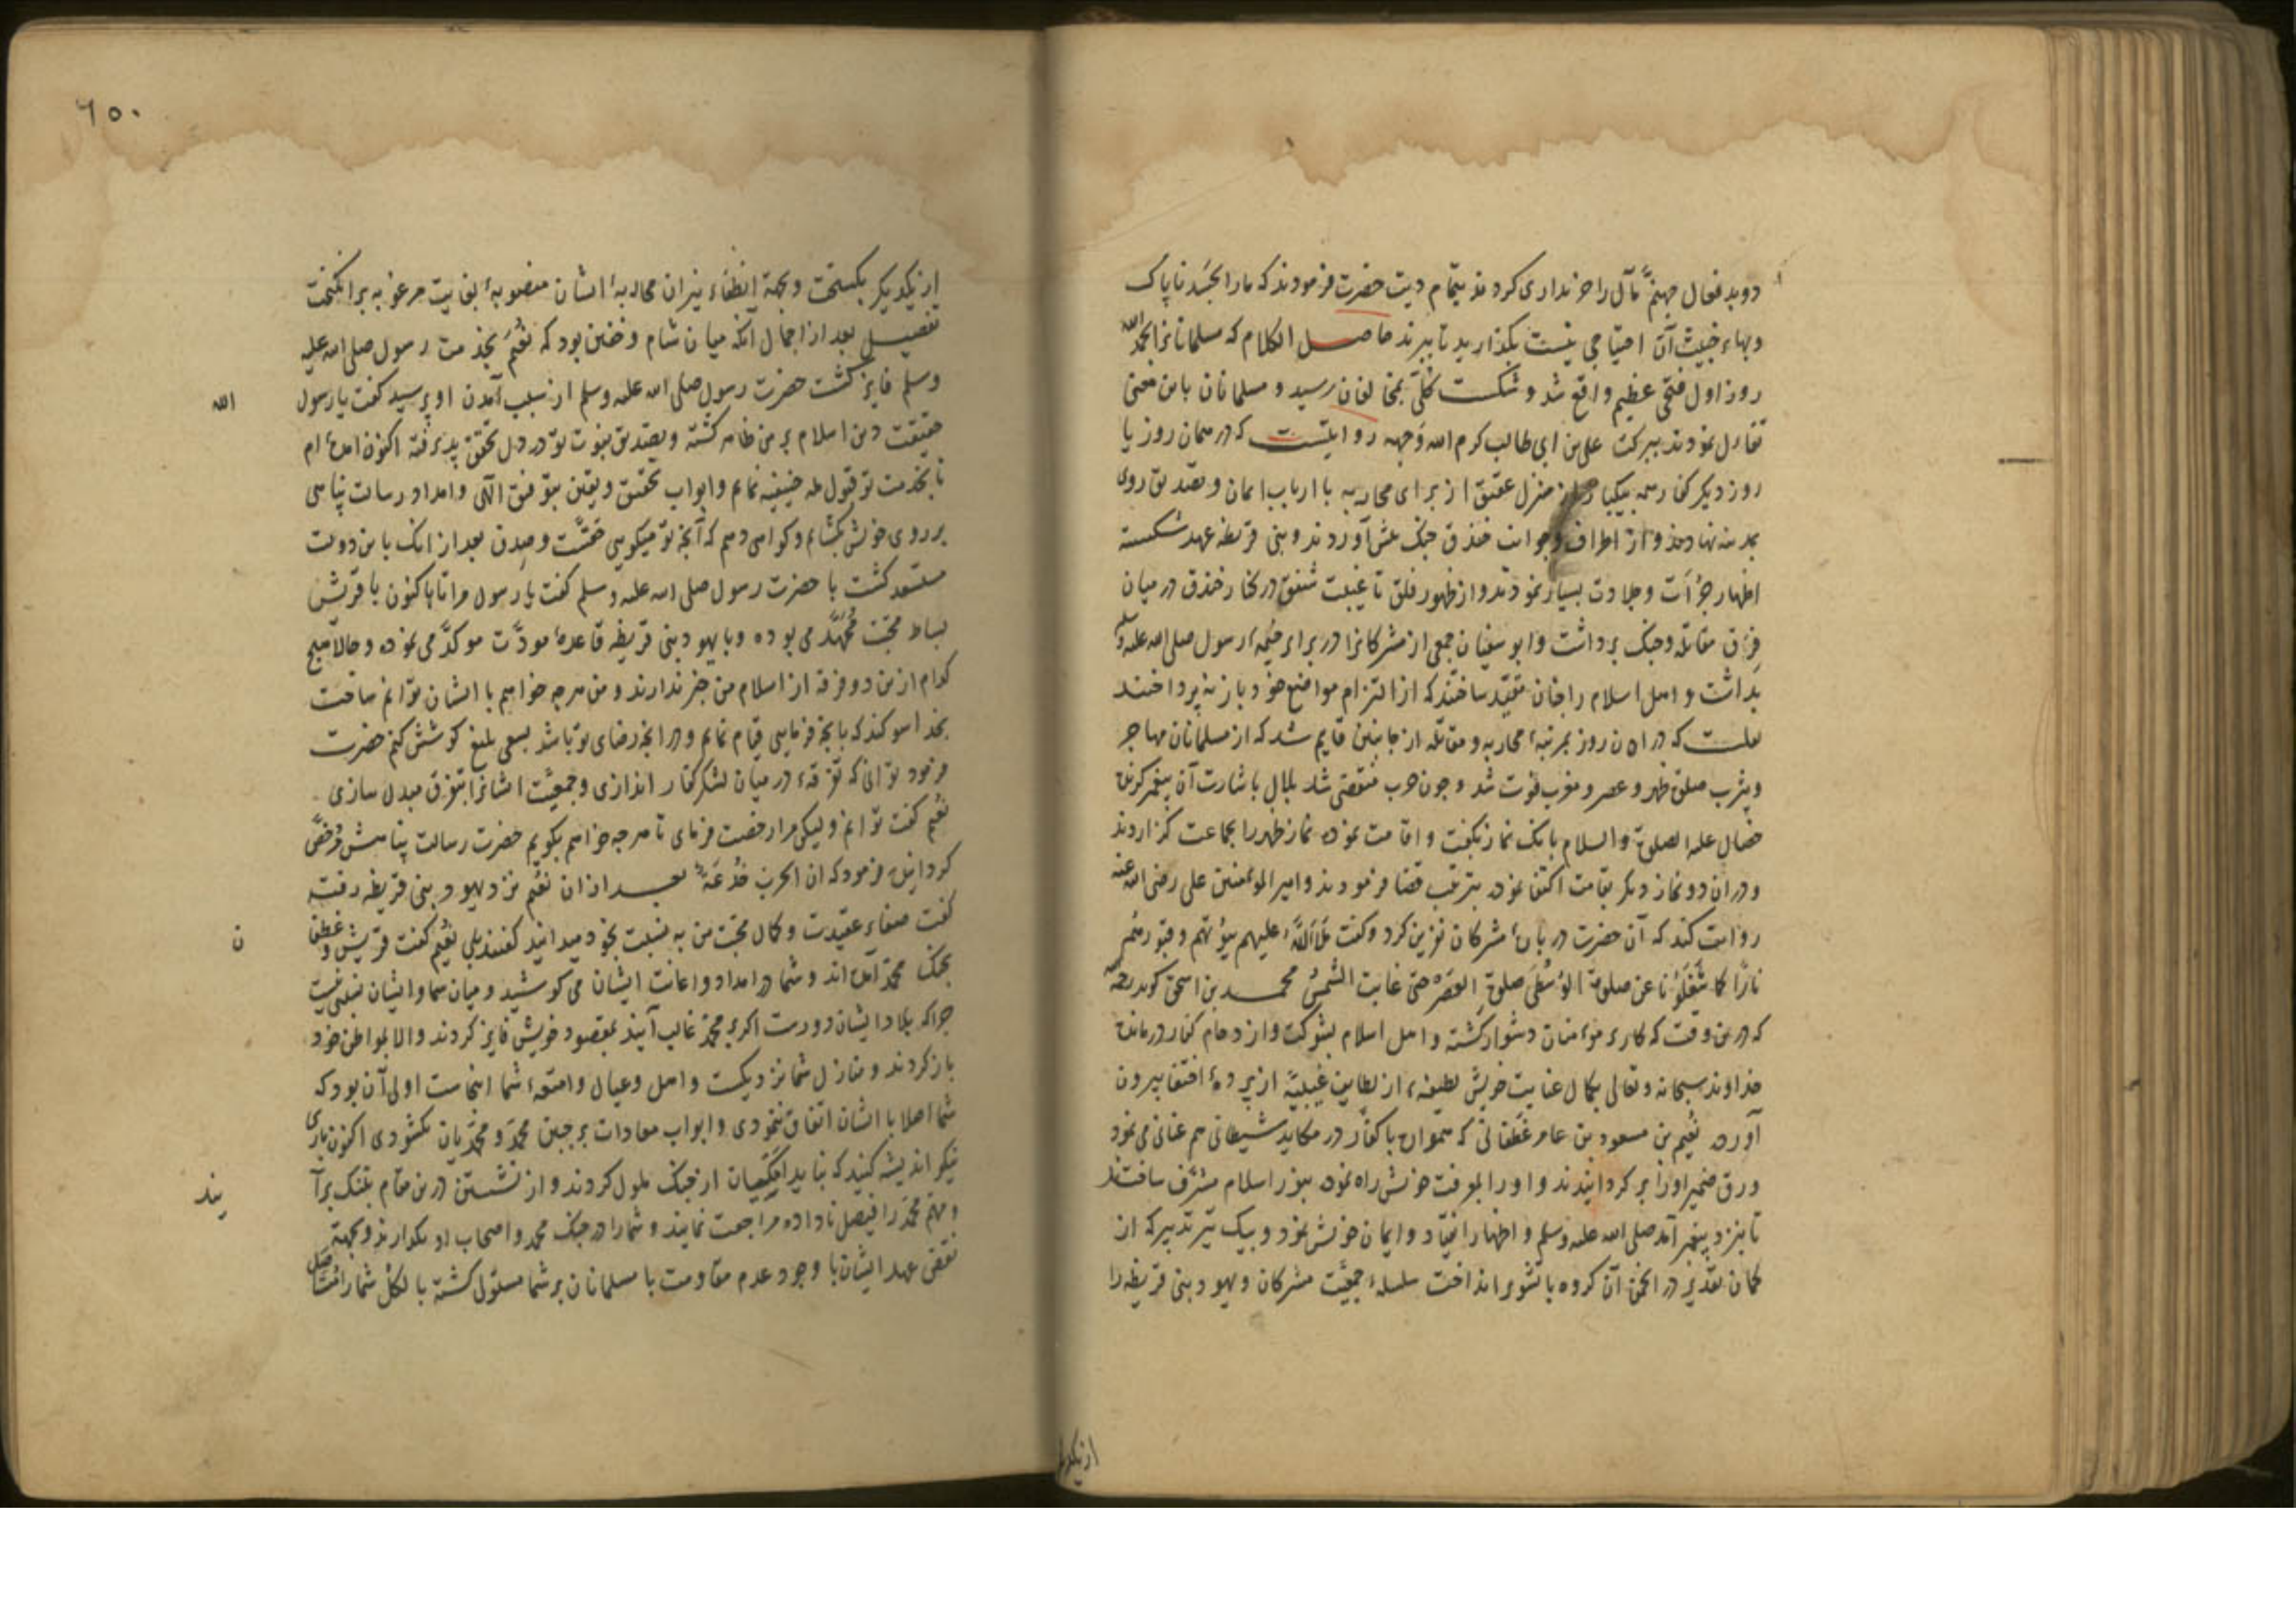 دوبد فعال جهنم مآل را خریداری کردند بتمام دیت حضرت فرمودند که ما را بجسد ناپاک
وبهاء خبیث آن احتیاجی نیست بکذارید تا ببرند حاصل الکلام که مسلمانانرا بحمد الله
روز اول فتحی عظیم واقع شد و شکست کلی بمخالفان رسید و مسلمانان باین معنی
تفاءل نمودند ببرکت علی بن ابی طالب کرم الله وجهه روایتست که در همان روز یا
روز دیکر کفار همه بیکبار از منزل عقیق از برای محاربه با ارباب ایمان و تصدیق روی
بمدینه نهادند و از اطراف و جوانب خندق جنک پیش آوردند و بنی قریظه عهد شکسته
اظهار جرأت و جلادت بسیار نمودند و از ظهور فلق تا غیبت شفق در کنار خندق در میان
فرق مقاتله و جنک برداشت و ابو سفیان جمعی از مشرکانرا در برابر خیمه رسول صلی الله علیه وسلم
بداشت و اهل اسلام را چنان مقید ساختند که از التزام مواضع خود باز نپرداختند
نقلست که در آن روز بمرتبه محاربه و مقاتله از جانبین قایم شد که از مسلمانان مهاجر
ویثرب صلوة ظهر و عصر و مغرب فوت شد و چون حرب منقضی شد بلال باشارت آن پیغمبر کزیده
خصال علیه الصلوة والسلام بانک نماز بکفت و اقامت نموده نماز ظهر را بجماعت کزاردند
و در آن دو نماز دیکر بقامت اکتفا نموده بترتیب قضا فرمودند و امیر المؤمنین علی رضی الله عنه
روایت کند که آن حضرت در باره مشرکان نفرین کرد و کفت ملأ الله علیهم بیوتهم و قبورهم
نارا کما شغلونا عن صلوة الوسطی صلوة العصر حتی غابت الشمس محمد بن اسحق کوید رحمه
که درین وقت که کار بر مؤمنان دشوار کشته و اهل اسلام بشوکت و ازدحام کفار درمانده
خداوند سبحانه وتعالی بکمال عنایت خویش لطیفه از لطایف غیبیه از پرده اختفا بیرون
آورد نعیم بن مسعود بن عامر غطفانی که همواره با کفار در مکاید شیطانی هم عنانی می نمود
ورق ضمیر او را بر کردانیدند و او را بمعرفت خویش راه نمود بنور اسلام مشرف ساختند
تا بنزد پیغمبر آمد صلی الله علیه وسلم و اظهار انقیاد و ایمان خویش نمود و بیک تیر تدبیر که از
کمان تقدیر در انجمن آن کروه با تشویر انداخت سلسله جمعیت مشرکان و یهود بنی قریظه را
از یکدیکر
٦٥٠
از یکدیکر بکسیخت و بجهة انطفاء نیران محاربه ایشان منصوبه بغایت مرغوبه بر انکیخت
تفصیل بعد از اجمال آنکه میان شام و خفتن بود که نعیم بخدمت رسول صلی الله علیه
وسلم فایز کشت حضرت رسول صلی الله علیه وسلم از سبب آمدن او پرسید کفت یا رسول
الله
حقیقت دین اسلام بر من ظاهر کشته و تصدیق نبوت تو در دل تحقق پذیرفته اکنون آمده ام
تا بخدمت تو قبول مله حنیفیه نمایم و ابواب تحقیق و یقین بتوفیق الهی و امداد رسالت پناهی
بر روی خویش بکشایم و کواهی دهم که آنچه تو میکویی حقست و صدق بعد از آنک باین دولت
مستسعد کشت با حضرت رسول صلی الله علیه وسلم کفت یا رسول مرا تا اکنون با قریش
بساط محبت ممهد می بوده و با یهود بنی قریظه قاعده مودت مؤکد می نموده و حالا هیچ
کدام ازین دو فرقه از اسلام من خبر ندارند و من هر چه خواهم با ایشان توانم ساخت
بخدا سوکند که بانچه فرمایی قیام نمایم و در آنچه رضای تو باشد بسعی بلیغ کوشش کنم حضرت
فرمود توانی که تفرقه در میان لشکر کفار اندازی و جمعیت ایشانرا بتفرق مبدل سازی
نعیم کفت توانم ولیکن مرا رخصت فرمای تا هر چه خواهم بکویم حضرت رسالت پناهیش مرخص
کردانید فرمود که ان الحرب خدعة بعد از آن نعیم نزد یهود بنی قریظه رفته
کفت صفاء عقیدت و کمال محبت من به نسبت بخود میدانید کفتند بلی نعیم کفت قریش و غطفا
ن
بجنک محمد آمده اند و شما در امداد و اعانت ایشان می کوشید و میان شما و ایشان نسبتی نیست
چرا که بلاد ایشان دورست اکر بر محمد غالب آیند بمقصود خویش فایز کردند والا بمواطن خود
باز کردند و منازل شما نزدیکست و اهل و عیال و امتعه شما اینجاست اولی آن بود که
شما اصلا با ایشان اتفاق ننمودی و ابواب معادات بر جبین محمد و محمدیان نکشودی اکنون باری
نیکو اندیشه کنید که نباید مکیان از جنک ملول کردند و از نشستن درین مقام بتنک بر آ
یند
و مهم محمد را فیصل ناداده مراجعت نمایند و شما را در جنک محمد و اصحاب او بکذارند و بجهة
نقض عهد ایشان با وجود عدم مقاومت با مسلمانان بر شما مستولی کشته بالکل شما را